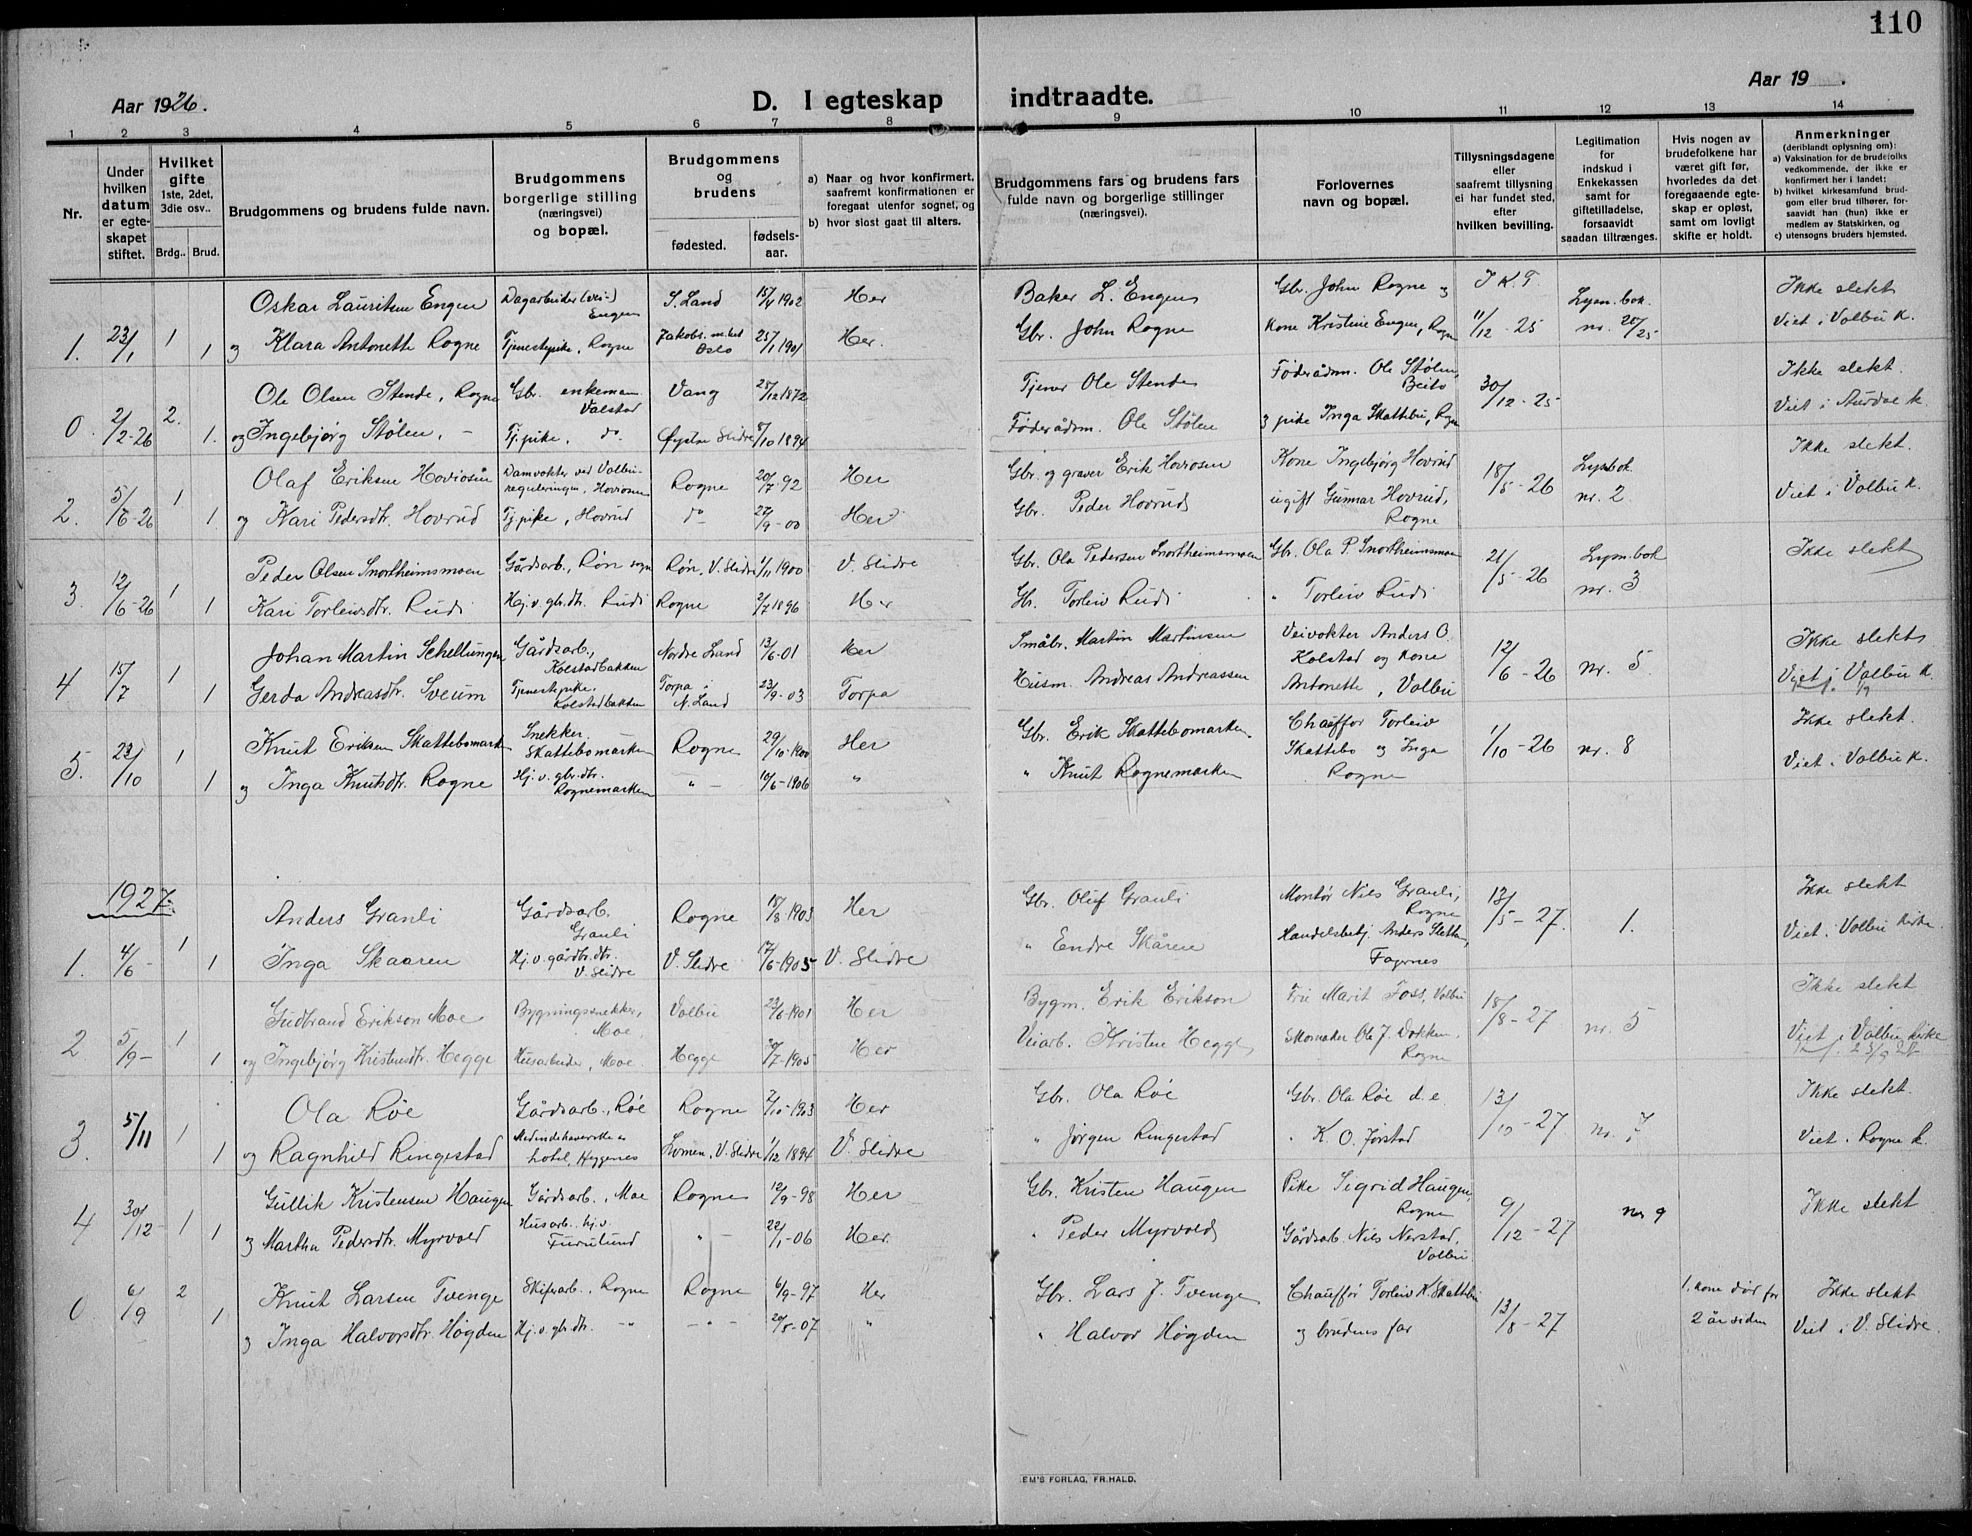 110
Aar 1926.
D. I egteskap indtraadte.
Aar 19 .
1 2 3 4 5 6 7 8 9 10 11 12 13 14
Nr.
Under hvilken datum er egteskapet stiftet.
Hvilket gifte 1ste, 2det, 3die osv..
Brdg.. Brud.
Brudgommens og brudens fulde navn.
Brudgommens borgerlige stilling (næringsvei) og bopæl.
Brudgommens og brudens
fødested. fødselsaar.
a) Naar og hvor konfirmert, saafremt konfirmationen er foregaat utenfor sognet, og
b) hvor sidst gaat til alters.
Brudgommens fars og brudens fars fulde navn og borgerlige stillinger (næringsvei).
Forlovernes navn og bopæl.
Tillysningsdagene eller saafremt tillysning ei har fundet sted, efter hvilken bevilling.
Legitimation for indskud i Enkekassen samt for giftetilladelse, forsaavidt saadan tiltrænges.
Hvis nogen av brudefolkene har været gift før, hvorledes da det foregaaende egteskap er opløst, samt om lovligt skifte er holdt.
Anmerkninger (deriblandt oplysning om):
a) Vaksination for de brudefolks vedkommende, der ikke er konfirmert her i landet;
b) hvilket kirkesamfund brudgom eller brud tilhører, forsaavidt han (hun) ikke er medlem av Statskirken, og
c) utensogns bruders hjemsted.
Oskar Lauritsen Engen Dagarbeider (vei-) Engen S. Land 15/4 1902 Her Baker L. Engen Gbr. John Rogne og J K. T Lysn.bok. Ikke slekt
1. 23/1 1 1 og Klara Antonette Rogne Tjenestepike, Rogne Jakobs. m.hed Oslo 25/1 1901 Her. Gbr. John Rogne Kone Kristine Engen, Rogne 11/12 - 25 nr. 20/25 Viet i Volbu K.
Ole Olsen Stende, Rogne Gbr. enkeman Valstad Vang 28/12 1872 Tjener Ole Stende Føderådm. Ole Stølen, Beito Ikke slekt.
0. 2/2-26 2. 1. og Ingebjørg Stølen, - Tj.pike, do. Øystre Slidre 8/10 1894 Føderådsm. Ole Stølen og pike Inga Skattebu, Rogne 30/12 - 25 Viet i Aurdal K.
Olaf Eriksen Hoviosen Damvokter ved Volbu-reguleringen, Hoviosen Rogne 20/7-92 Her Gbr. og graver Erik Hoviosen Kone Ingebjørg Hovrud Lysn.bok Ikke slekt.
2. 5/6-26 1 1 og Kari Pedersdtr. Hovrud Tj.pike, Hovrud do 27/9-00 Her Gbr. Peder Hovrud ugift Gunnar Hovrud, Rogne 18/5 - 26 nr. 2. Viet i Volbu K.
Peder Olsen Snortheimsmoen Gårdsarb., Røn sogn Røn, V. Slidre 1/11 1900 V. Slidre Gbr. Ola Pedersen Snortheimsmoen Gbr. Ola P. Snortheimsmoen Lysn.bok Ikke slekt
3. 12/6-26 1 1 Kari Torleivsdtr. Rudi Hj.v. gbr.dtr. Rudi Rogne 2/7 1896 Her Gbr. Torleiv Rudi " Torleiv Rudi 21/5-26 nr. 3
Johan Martin Schellungen Gårdsarb., Kolstadbakken Nordre Land 13/6-01 Her Småbr. Martin Martinsen Veivokter Anders O. Kolstad og kone Ikke slekt
4 15/7 1 1 Gerda Andreasdtr. Sveum Tjenestepike, Kolstadbakken Torpa i N. Land 23/9-03 Torpa Husm. Andreas Andreassen Antonette, Volbu 12/6 - 26 nr. 5 Viet i Volbu K.
Knut Eriksen Skattebomarken Snekker. Skattebomarken Rogne 29/10-1900 Her Gbr. Erik Skattebomarken. Chauffør Torleiv Skattebo og Inga Rogne Ikke slekt.
5. 23/10 1 1 og Inga Knutsdtr. Rogne Hj.v. gbr.dtr. Rognemarken " - 10/6-1906 " " Knut Rognemarken 1/10-26 nr. 8 Viet i Volbu K.
1927.
Anders Granli Gårdsarb. Granli Rogne 18/8-1903 Her Gbr. Oluf Granli Montør Nils Granli, Rogne Ikke slekt
1. 4/6 - 1 1 Inga Skaaren Hj.v. gårdbr.dtr. V. Slidre V. Slidre 17/6-1905 V. Slidre " Endre Skåren Handelsbetj. Anders Sletten, Fagernes 13/5 - 27. 1. Viet i Volbu kirke.
Gudbrand Erikson Moe Bygningssnekker, Moe Volbu 23/6-1901 Her Bygm. Erik Erikson Fru Marit Foss, Volbu Ikke slekt
2 5/9 - 1 1 og Ingebjørg Kristensdtr. Hegge Husarbeider, Moe. Hegge 20/7-1905 Her Veiarb. Kristen Hegge Skomaker Ola J. Dokken. Rogne 18/8-27 nr. 5 Viet i Volbu kirke
Ola Røe Gårdsarb., Røe Rogne 2/10-1903 Her Gbr. Ola Røe Gbr. Ola Røe d.e. Ikke slekt.
3. 5/11 1 1 og Ragnhild Ringestad Medindehaverske av hotel, Heggenes Lomen, V. Slidre 1/12 1894 V. Slidre " Jørgen Ringestad " K. O. Jorstad 13/10-27. nr. 7 Viet i Rogne K.
Gullik Kristensen Haugen Gårdsarb., Moe Rogne 12/9-98 Her Gbr. Kristen Haugen Pike Sigrid Haugen, Rogne Ikke slekt
4 30/12 1 1 og Martha Pedersdtr. Myrvold Husarb. hj.v. Furulund " - 22/1-06 Her. " Peder Myrvold Gårdsarb. Nils Nerstad, Volbu 9/12-27 nr 9
Knut Larsen Tvenge Skiferarb., Rogne Rogne 6/9-97 Her Gbr. Lars J. Tvenge Chauffør Torleiv K. Skattebu 1. kone død for Ikke slekt
0 6/9 2 1 og Inga Halvorsdtr. Høgden Hj.v. gbr.dtr. -"- -"- 20/8-07 " " Halvor Høgden og brudens far 13/8-27 2 år siden Viet i V. Slidre.
EM'S FORLAG, FR. HALD.